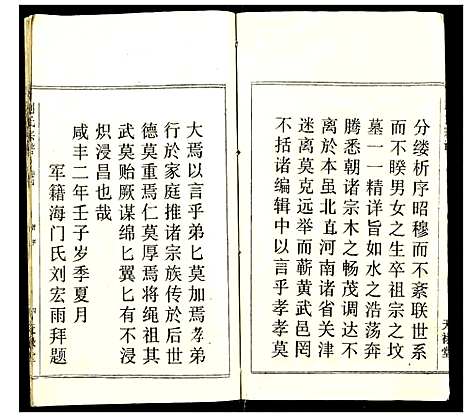 分缕析序昭穆而不紊联世系
而不睽男女之生卒祖宗之坟
墓一一精详旨如水之浩荡奔
腾悉朝诸宗木之畅茂调达不
离於本虽北直河南诸省关津
迷离莫克远举而蕲黄武邑罔
不括诸编辑中以言乎孝孝莫
大焉以言乎弟匕莫加焉孝弟
行於家庭推诸宗族传於后世
德莫重焉仁莫厚焉将绳祖武
武莫贻厥谋绵匕翼匕有不浸
炽浸昌也哉
咸丰二年壬子岁季夏月
军籍海门氏刘宏雨拜题